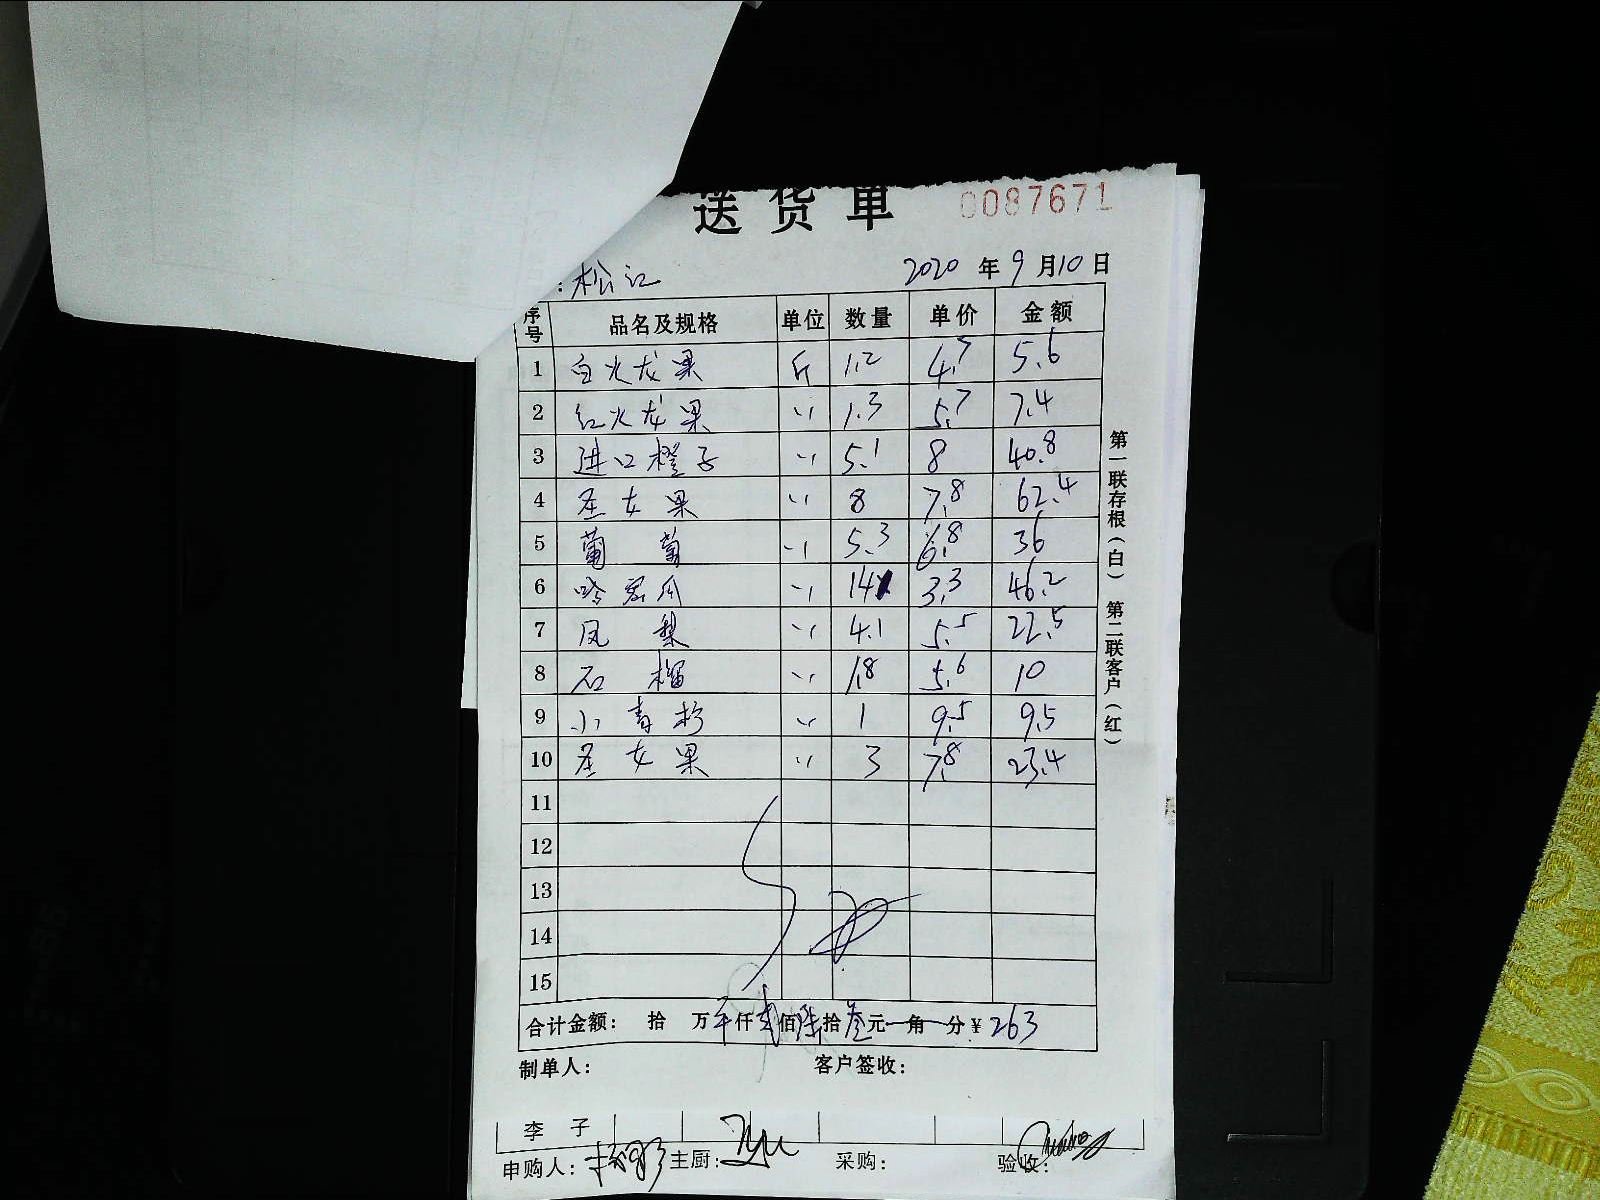 送货单 0087671
:松江 2020年9月10日
序号 品名及规格 单位 数量 单价 金额
1 白火龙果 斤 1.2 4.7 5.6
2 红火龙果 〃 1.3 5.7 7.4
3 进口橙子 〃 5.1 8 40.8
4 圣女果 〃 8 7.8 62.4
5 葡萄 〃 5.3 6.8 36
6 哈密瓜 〃 14 3.3 46.2
7 凤梨 〃 4.1 5.5 22.5
8 石榴 〃 1.8 5.6 10
9 小青柠 〃 1 9.5 9.5
10 圣女果 〃 3 7.8 23.4
11
12
13
14
15
合计金额: 拾 万 仟 佰 陆拾叁元 角 分¥263
制单人: 客户签收:
第一联存根(白) 第二联客户(红)
李子
申购人: 主厨: 采购: 验收: